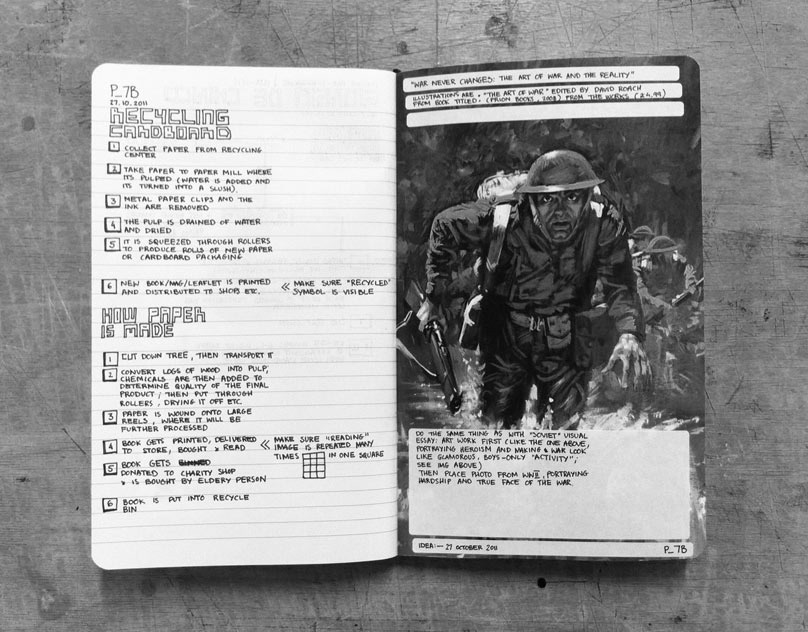 P_7B
27.10.2011
RECYCLING
CARDBOARD
1 COLLECT PAPER FROM RECYCLING
CENTER
2 TAKE PAPER TO PAPER MILL WHERE
ITS PULPED (WATER IS ADDED AND
ITS TURNED INTO A SLUSH).
3 METAL PAPER CLIPS AND THE
INK ARE REMOVED
4 THE PULP IS DRAINED OF WATER
AND DRIED
5 IT IS SQUEEZED THROUGH ROLLERS
TO PRODUCE ROLLS OF NEW PAPER
OR CARDBOARD PACKAGING
6 NEW BOOK/MAG/LEAFLET IS PRINTED
AND DISTRIBUTED TO SHOPS ETC.
« MAKE SURE "RECYCLED"
SYMBOL IS VISIBLE
HOW PAPER
IS MADE
1 CUT DOWN TREE, THEN TRANSPORT IT
2 CONVERT LOGS OF WOOD INTO PULP,
CHEMICALS ARE THEN ADDED TO
DETERMINE QUALITY OF THE FINAL
PRODUCT, THEN PUT THROUGH
ROLLERS, DRYING IT OFF ETC.
3 PAPER IS WOUND ONTO LARGE
REELS, WHERE IT WILL BE
FURTHER PROCESSED
4 BOOK GETS PRINTED, DELIVERED
TO STORE, BOUGHT & READ
« MAKE SURE "READING"
IMAGE IS REPEATED MANY
TIMES IN ONE SQUARE
5 BOOK GETS
DONATED TO CHARITY SHOP
& IS BOUGHT BY ELDERY PERSON
6 BOOK IS PUT INTO RECYCLE
BIN
"WAR NEVER CHANGES: THE ART OF WAR AND THE REALITY"
ILLUSTRATIONS ARE • "THE ART OF WAR" EDITED BY DAVID ROACH
FROM BOOK TITLED: • (PRION BOOKS, 2008) FROM THE WORKS (£4.99)
DO THE SAME THING AS WITH "SOVIET" VISUAL
ESSAY: ART WORK FIRST (LIKE THE ONE ABOVE,
PORTRAYING HEROISM AND MAKING WAR LOOK
LIKE GLAMOROUS, BOYS-ONLY "ACTIVITY",
SEE IMG ABOVE)
THEN PLACE PHOTO FROM WWII, PORTRAYING
HARDSHIP AND TRUE FACE OF THE WAR
IDEA:— 27 OCTOBER 2011
P_7B